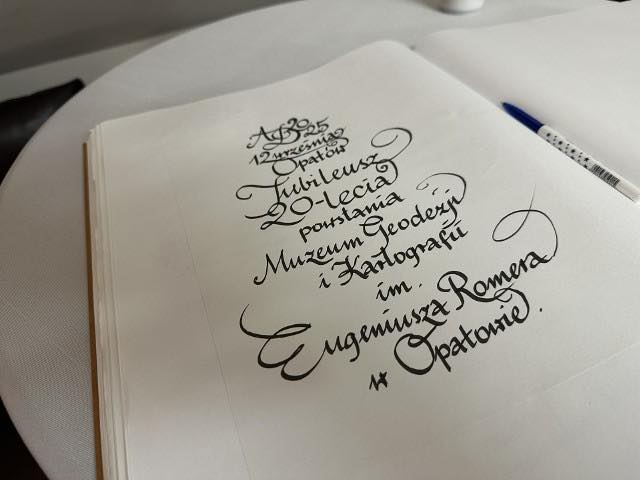 AD 2025
12 września
Opatów
Jubileusz
20-lecia
powstania
Muzeum Geodezji
i Kartografii
im.
Eugeniusza Romera
w Opatowie.